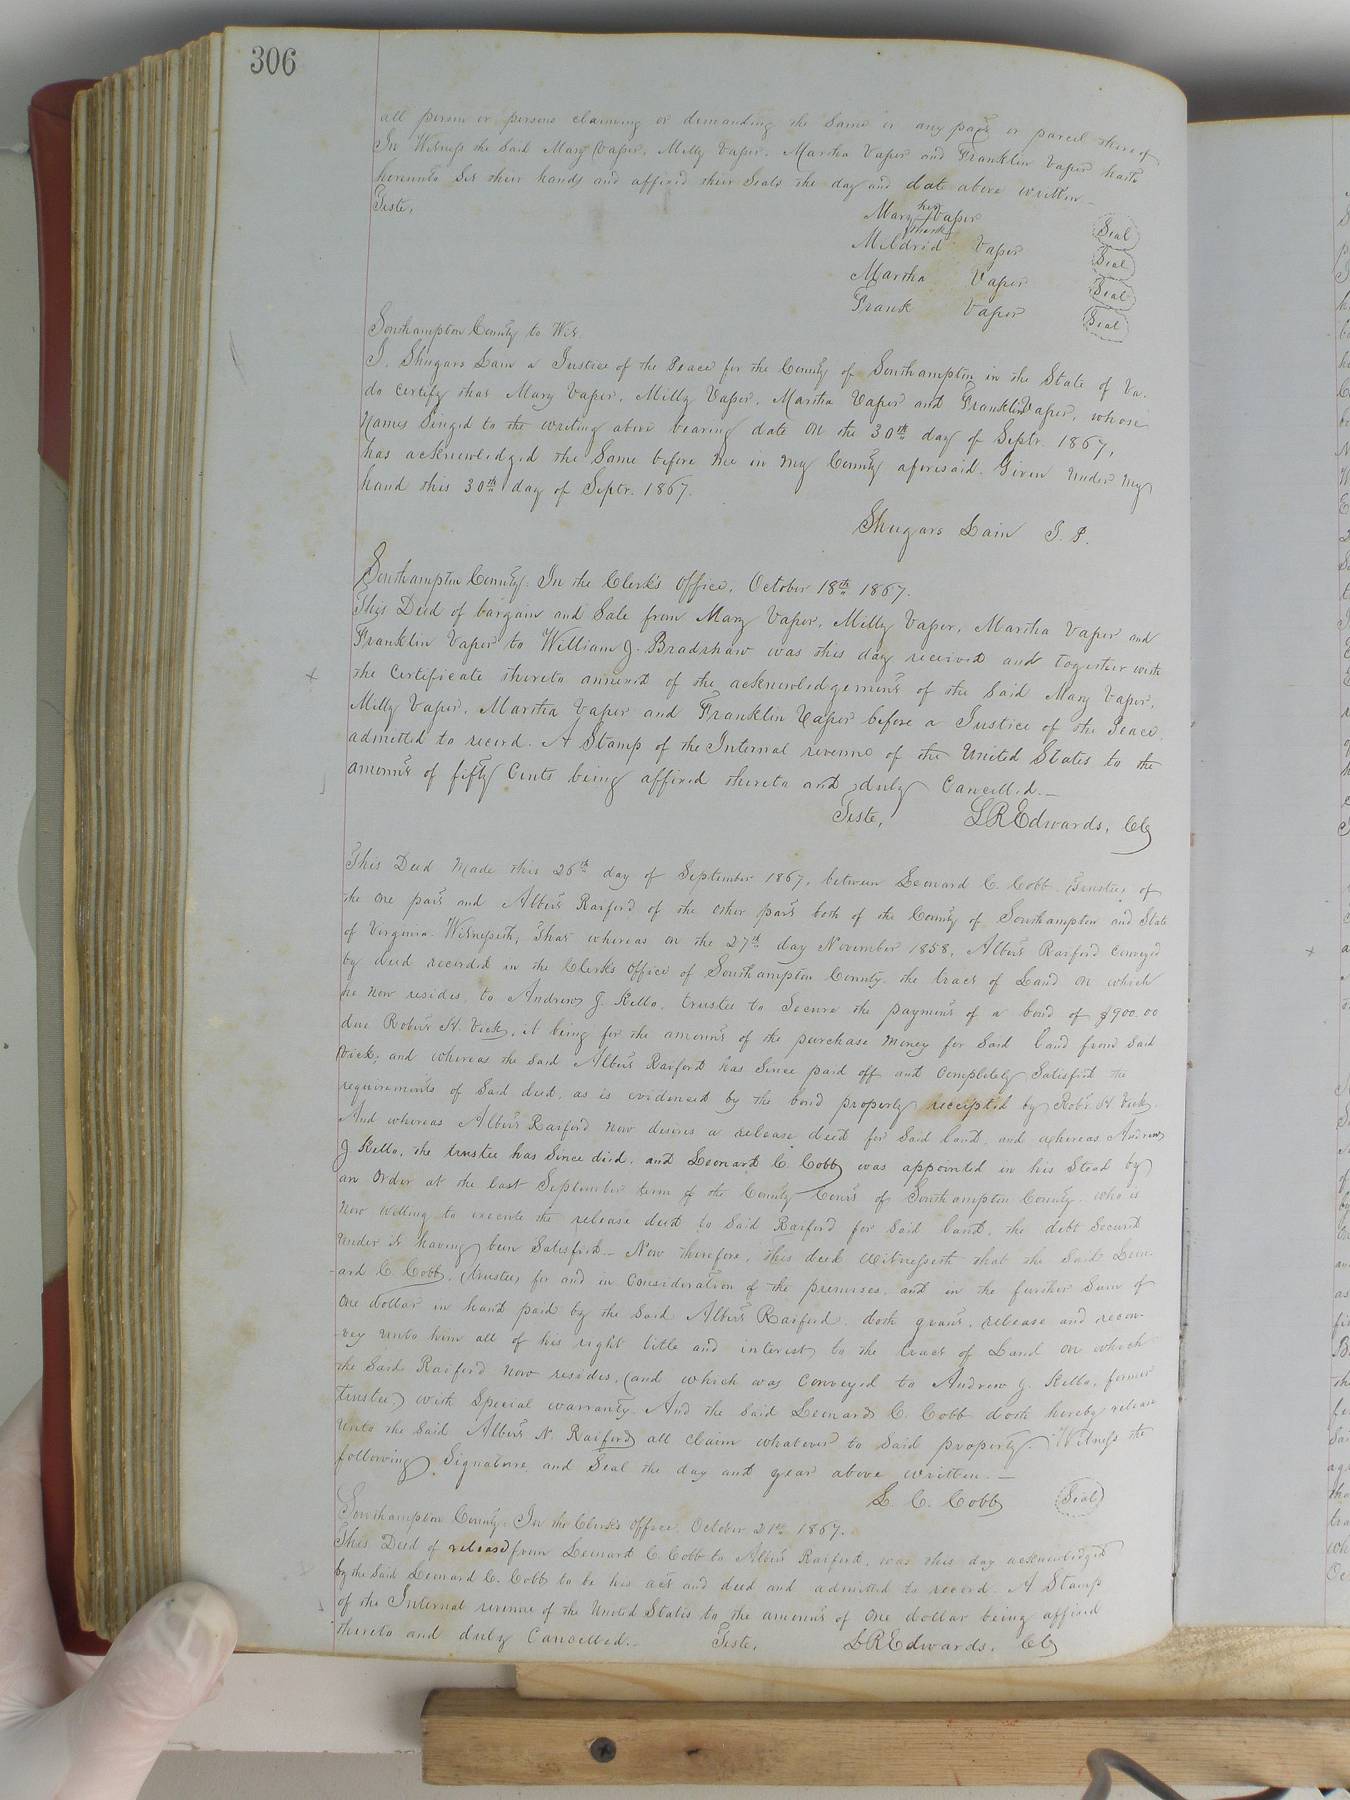 306
all person or persons claiming or demanding the Same or any part or parcel thereof
In Witness the Said Mary Vaper, Milly Vaper, Martha Vaper and Franklin Vaper hath
hereunto Set their hands and affixed their Seals the day and date above written—
Teste,
Mary her mark Vaper Seal
Mildrid Vaper Seal
Martha Vaper Seal
Frank Vaper Seal
Southampton County to Wit.
I. Shugars Lain a Justice of the Peace for the County of Southampton in the State of Va.
do certify that Mary Vaper, Milly Vaper, Martha Vaper and Franklin Vaper, whose
Names Singed to the writing above bearing date on the 30th day of Septr. 1867,
has acknowledged the Same before me in my County aforesaid. Given under my
hand this 30th day of Septr. 1867.
Shugars Lain J. P.
Southampton County. In the Clerk's Office, October 18th 1867.
This Deed of bargain and Sale from Mary Vaper, Milly Vaper, Martha Vaper and
Franklin Vaper to William J. Bradshaw was this day received and together with
the Certificate thereto annexed of the acknowledgement of the Said Mary Vaper,
Milly Vaper, Martha Vaper and Franklin Vaper before a Justice of the Peace
admitted to record. A Stamp of the Internal revenue of the United States to the
amount of fifty Cents being affixed thereto and duly Cancelled.—
Teste, L R Edwards, Clk
This Deed Made this 26th day of September 1867, between Leonard C. Cobb, Trustee, of
the one part and Albert Raiford of the other part both of the County of Southampton and State
of Virginia. Witnesseth, That whereas on the 27th day November 1858, Albert Raiford Conveyed
by deed recorded in the Clerk's Office of Southampton County, the tract of Land on which
he now resides, to Andrew J. Kello, trustee to Secure the payment of a bond of $900.00
due Robert H. Vick, it being for the amount of the purchase money for Said land from Said
Vick, and whereas the said Albert Raiford has Since paid off and Completely Satisfied the
requirements of Said deed, as is evidenced by the bond property receipted by Robt. H. Vick.
And whereas Albert Raiford now desires a release deed for Said land, and whereas Andrew
J Kello, the trustee has Since died, and Leonard C. Cobb was appointed in his Stead by
an Order at the last September term of the County Court of Southampton County, who is
Now willing to execute the release deed to Said Raiford for Said land, the debt Secured
under it having been Satisfied— Now therefore, this deed witnesseth that the Said Leon-
-ard C. Cobb, (trustee) for and in Consideration of the premises, and in the further Sum of
One dollar in hand paid by the Said Albert Raiford, doth grant, release and recon-
-vey unto him all of his right title and interest to the tract of Land on which
the Said Raiford now resides, (and which was Conveyed to Andrew J. Kello, former
trustee,) with Special warranty. And the Said Leonard C. Cobb doth hereby release
Unto the Said Albert N. Raiford all claim whatever to Said property. Witness the
following Signature and Seal the day and year above written.—
L. C. Cobb Seal
Southampton County. In the Clerk's Office, October 21st 1867.
This Deed of released from Leonard C. Cobb to Albert Raiford, was this day acknowledged
by the Said Leonard C. Cobb to be his act and deed and admitted to record. A Stamp
of the Internal revenue of the United States to the amount of One dollar being affixed
thereto and duly Cancelled.— Teste, L R Edwards, Clk